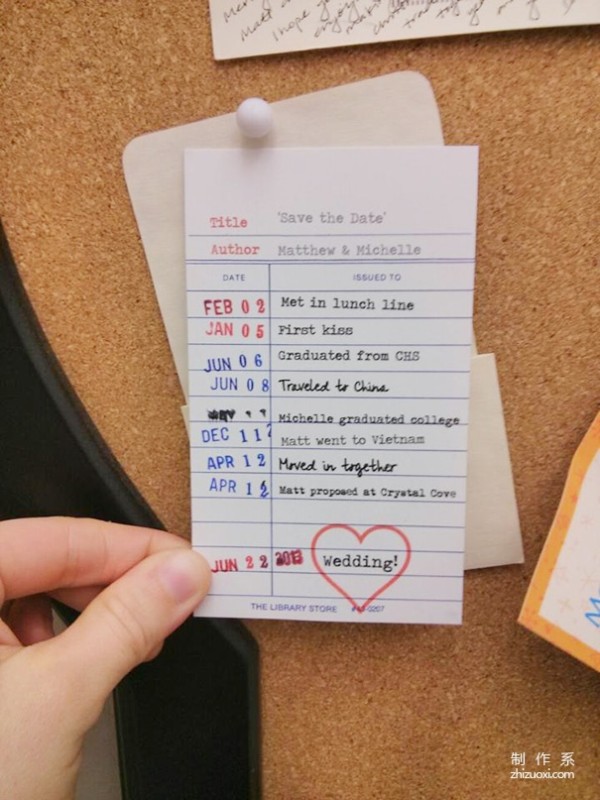 Matt
I hope y
Title 'Save the Date'
Author Matthew & Michelle
DATE ISSUED TO
FEB 0 2 Met in lunch line
JAN 0 5 First kiss
JUN 0 6 Graduated from CHS
JUN 0 8 Traveled to China
MAY Michelle graduated college
DEC 1 1 Matt went to Vietnam
APR 1 2 Moved in together
APR 1 2 Matt proposed at Crystal Cove
JUN 2 2 2013 Wedding!
THE LIBRARY STORE
制作系
zhizuoxi.com